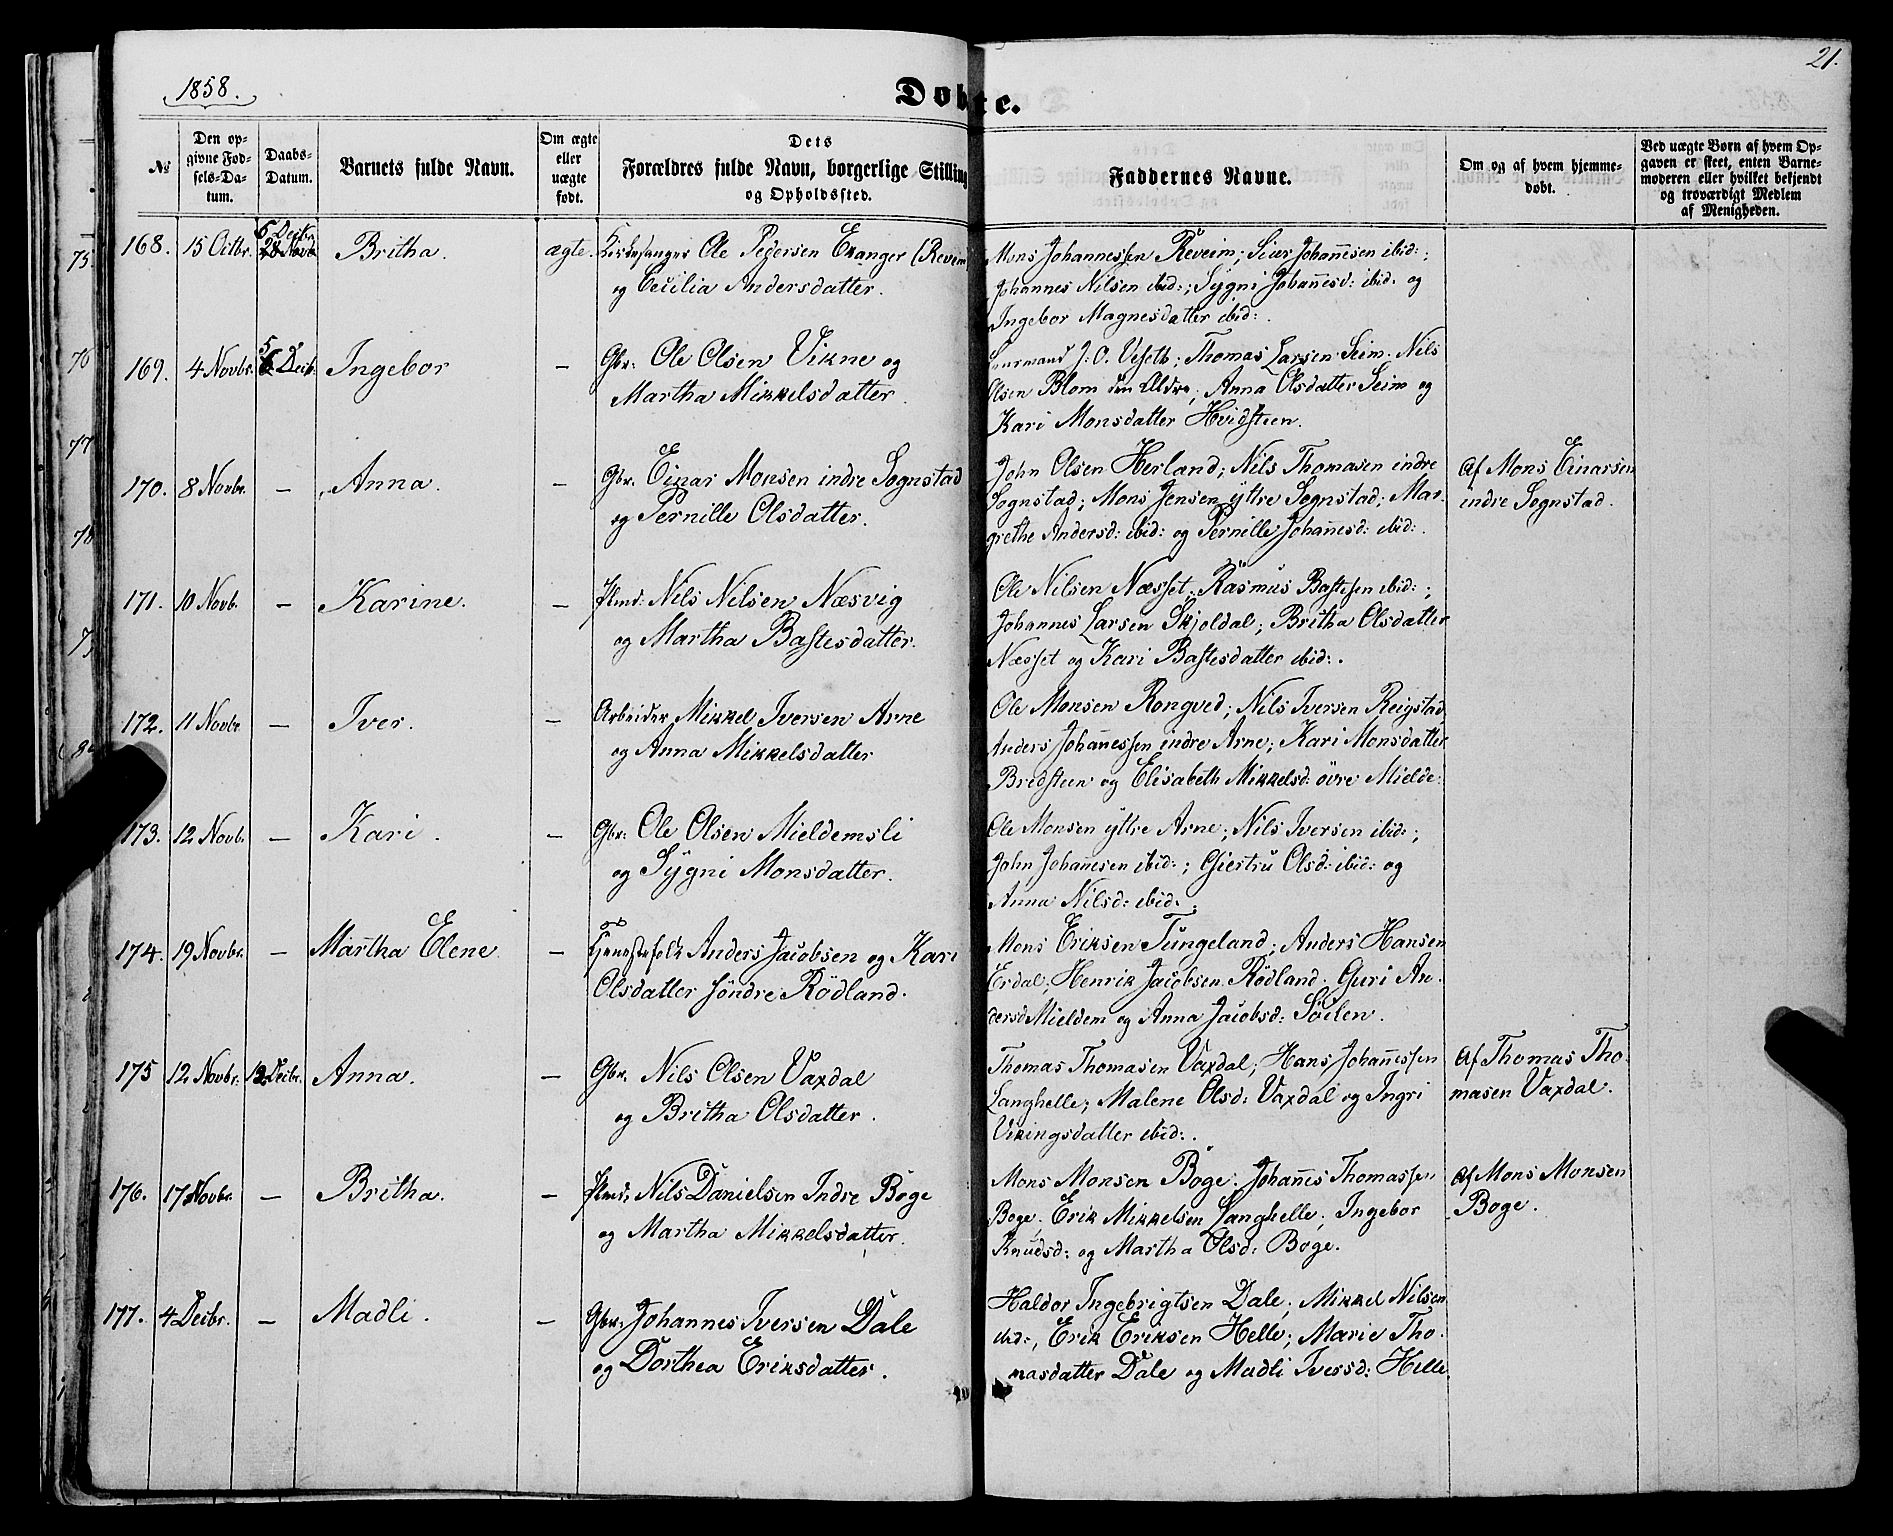 1858.
21.
Døbte.
No
Den opgivne Fødsels-Datum.
Daabs-Datum.
Barnets fulde Navn.
Om ægte eller uægte født.
Dets Forældres fulde Navn, borgerlige Stilling og Opholdssted.
Faddernes Navne.
Om og af hvem hjemmedøbt.
Ved uægte Børn af hvem Opgaven er skeet, enten Barnemoderen eller hvilket bekjendt og troværdigt Medlem af Menigheden.
168. 15 Octbr. Britha. ægte. Kirkesanger Ole Pedersen Evanger (Reveim
og Cecilia Andersdatter.
Mons Johannessen Reveim; Siur Johannesen ibid:;
Johannes Nilsen ibid:; Sygni Johannesd: ibid: og
Ingebor Magnesdatter ibid:.
169. 4 Novbr. 5 Decbr. Ingebor — Gbr: Ole Olsen Vikne og
Martha Mikkelsdatter.
J. O. Veseth; Thomas Larsen Seim. Nils
Olsen Blom den Ældre; Anna Olsdatter Seim og
Kari Monsdatter Hvidsteen.
170. 8 Novbr. — Anna. — Gbr. Einar Monsen indre Sognstad
og Pernille Olsdatter.
John Olsen Herland; Nils Thomasen indre
Sognstad; Mons Jensen yttre Sognstad; Mar-
grethe Andersd: ibid: og Pernille Johannesd: ibid:.
Af Mons Einarsen
indre Sognstad.
171. 10 Novb. — Karine. — Plmd: Nils Nilsen Næsvig
og Martha Bastesdatter.
Ole Nilsen Næsset; Rasmus Bastesen ibid:;
Johannes Larsen Skjoldal; Britha Olsdatter
Næsset og Kari Bastesdatter ibid:.
172. 11 Novbr. — Iver. — Arbeider Mikkel Iversen Arne
og Anna Mikkelsdatter
Ole Monsen Rongved; Nils Iversen Reigstad,
Anders Johannessen indre Arne; Kari Monsdatter
Bredsteen og Elisabeth Mikkelsd: övre Mielde.
173. 12 Novb. — Kari. — Gbr: Ole Olsen Mieldemsli
og Sygni Monsdatter.
Ole Monsen yttre Arne; Nils Iversen ibid:;
John Johannesen ibid:; Gjertru Olsd: ibid: og
Anna Nilsd: ibid:.
174. 19 Novbr. — Martha Elene. — Tjenestefolk Anders Jacobsen og Kari
Olsdatter söndre Rödland.
Mons Eriksen Tungeland; Anders Hansen
Erdal; Henrik Jacobsen Rödland. Guri An-
dersd Mieldem og Anna Jacobsd: Söelen.
175 12 Novbr. 12 Decbr. Anna. — Gbr. Nils Olsen Vaxdal
og Britha Olsdatter.
Thomas Thomasen Vaxdal; Hans Johannessen
Langhelle; Malene Olsd: Vaxdal og Ingri
Vikingsdatter ibid:.
Af Thomas Tho-
masen Vaxdal.
176. 17 Novbr. — Britha. — Plmd. Nils Danielsen Indre Boge
og Martha Mikkelsdatter.
Mons Monsen Boge. Johannes Thomassen
Boge. Erik Mikkelsen Langhelle; Ingebor
Knudsd: og Martha Olsd: Boge.
Af Mons Monsen
Boge.
177. 4 Decbr. — Madli. — Gbr: Johannes Iversen Dale
og Dorthea Eriksdatter.
Haldor Ingebrigtsen Dale; Mikkel Nilsen
ibid:, Erik Eriksen Helle; Marie Tho-
masdatter Dale og Madli Iversd: Helle.